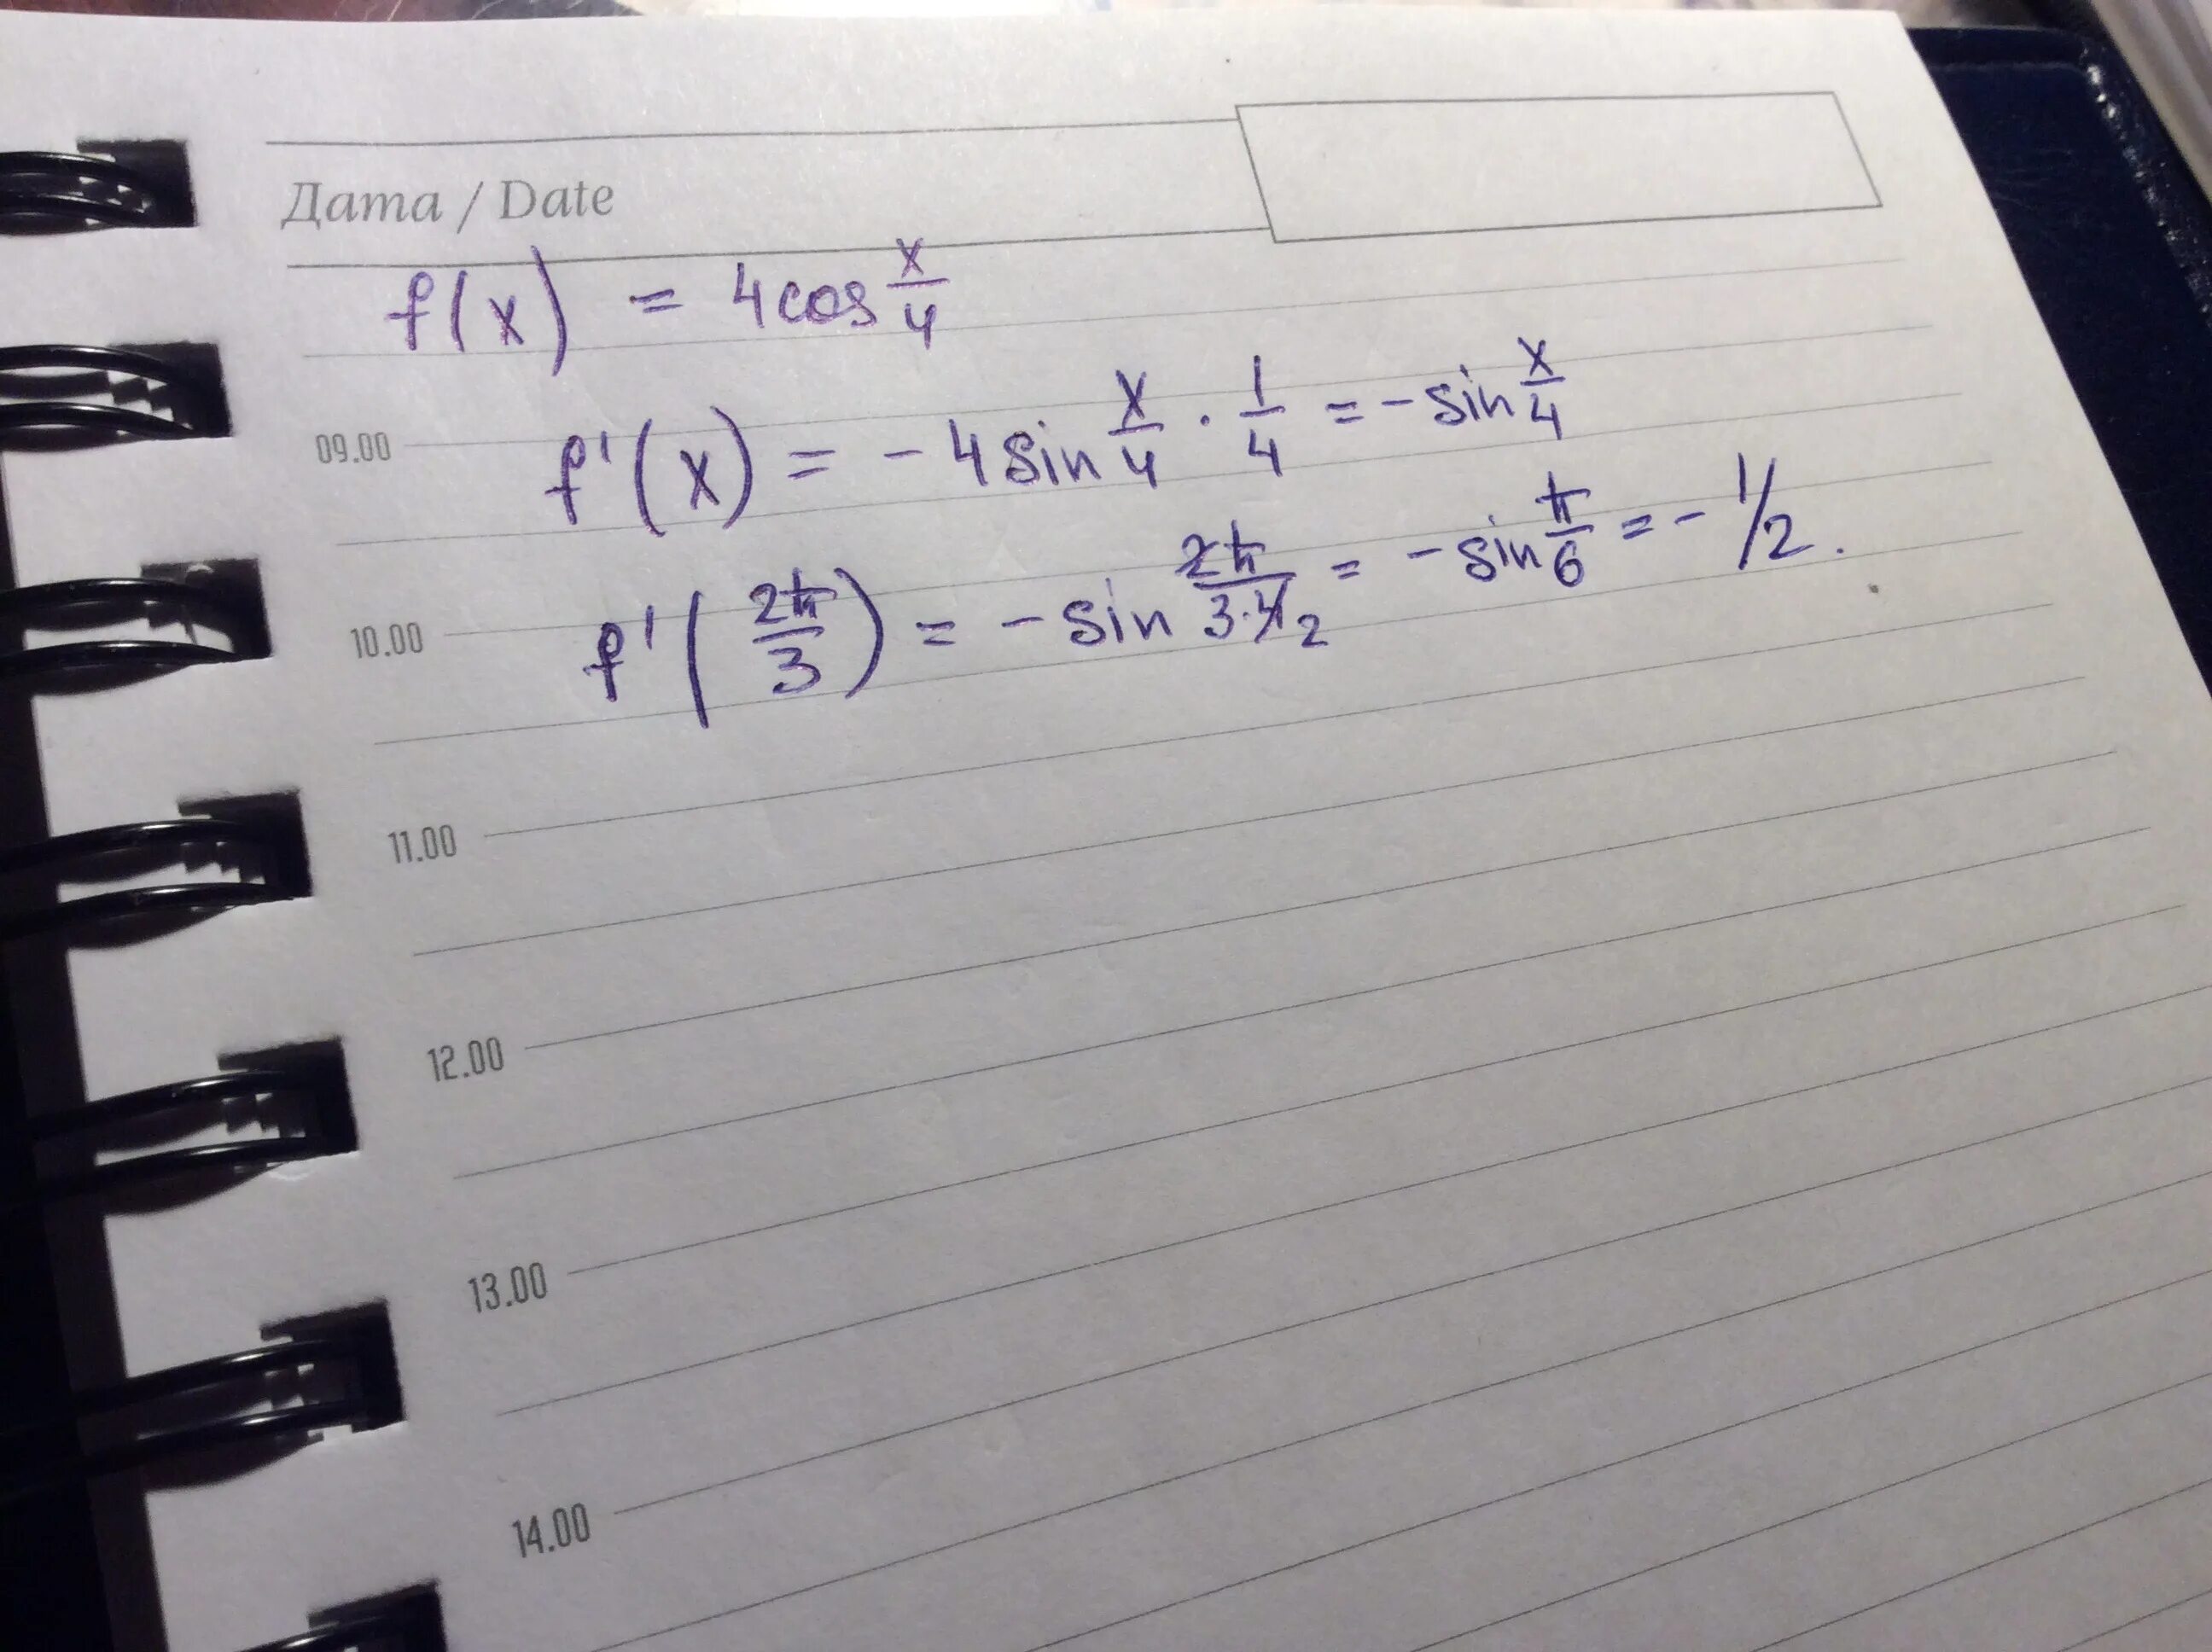 Дата / Date
f(x) = 4cos x/4
09.00
f'(x) = - 4 sin x/4 · 1/4 = - sin x/4
10.00
f'(2π/3) = - sin 2π/3·4 2 = - sin π/6 = - 1/2.
11.00
12.00
13.00
14.00